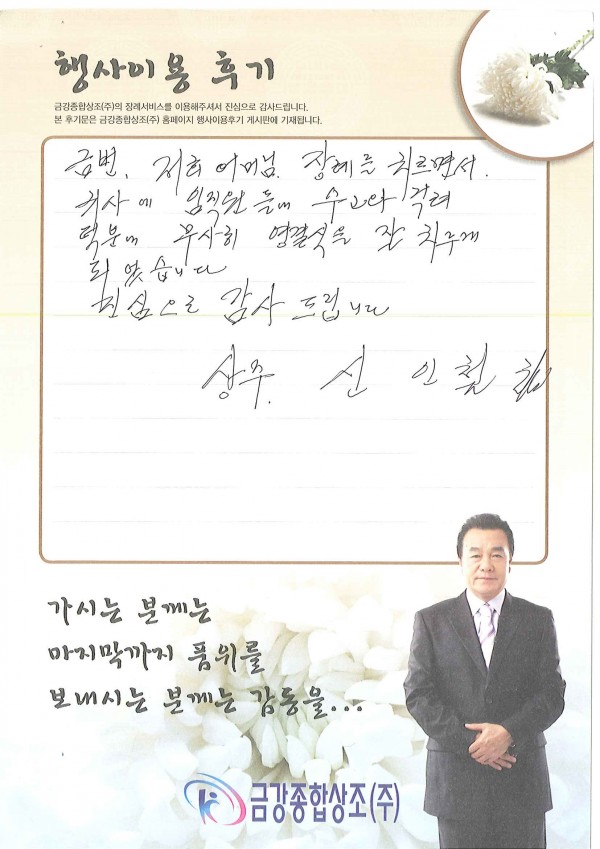 행사이용 후기
금강종합상조(주)의 장례서비스를 이용해주셔서 진심으로 감사드립니다.
본 후기문은 금강종합상조(주) 홈페이지 행사이용후기 게시판에 기재됩니다.
금번, 저희 어머님 장례를 치르면서.
귀사에 임직원들에 수고와 격려
덕분에 무사히 영결식을 잘 치루게
되었습니다
진심으로 감사드립니다
상주. 신인철
가시는 분께는
마지막까지 품위를
보내시는 분께는 감동을...
금강종합상조(주)